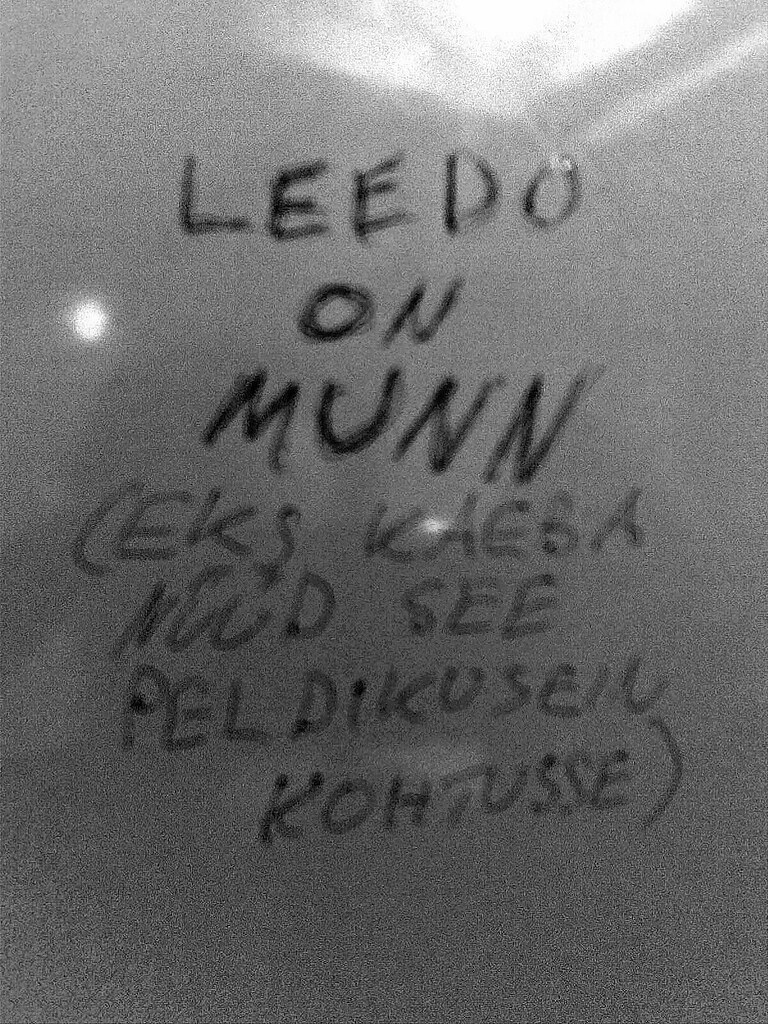 LEEDO
ON
MUNN
(EKS KAEBA
NÜÜD SEE
PELDIKUSEIN
KOHTUSSE)